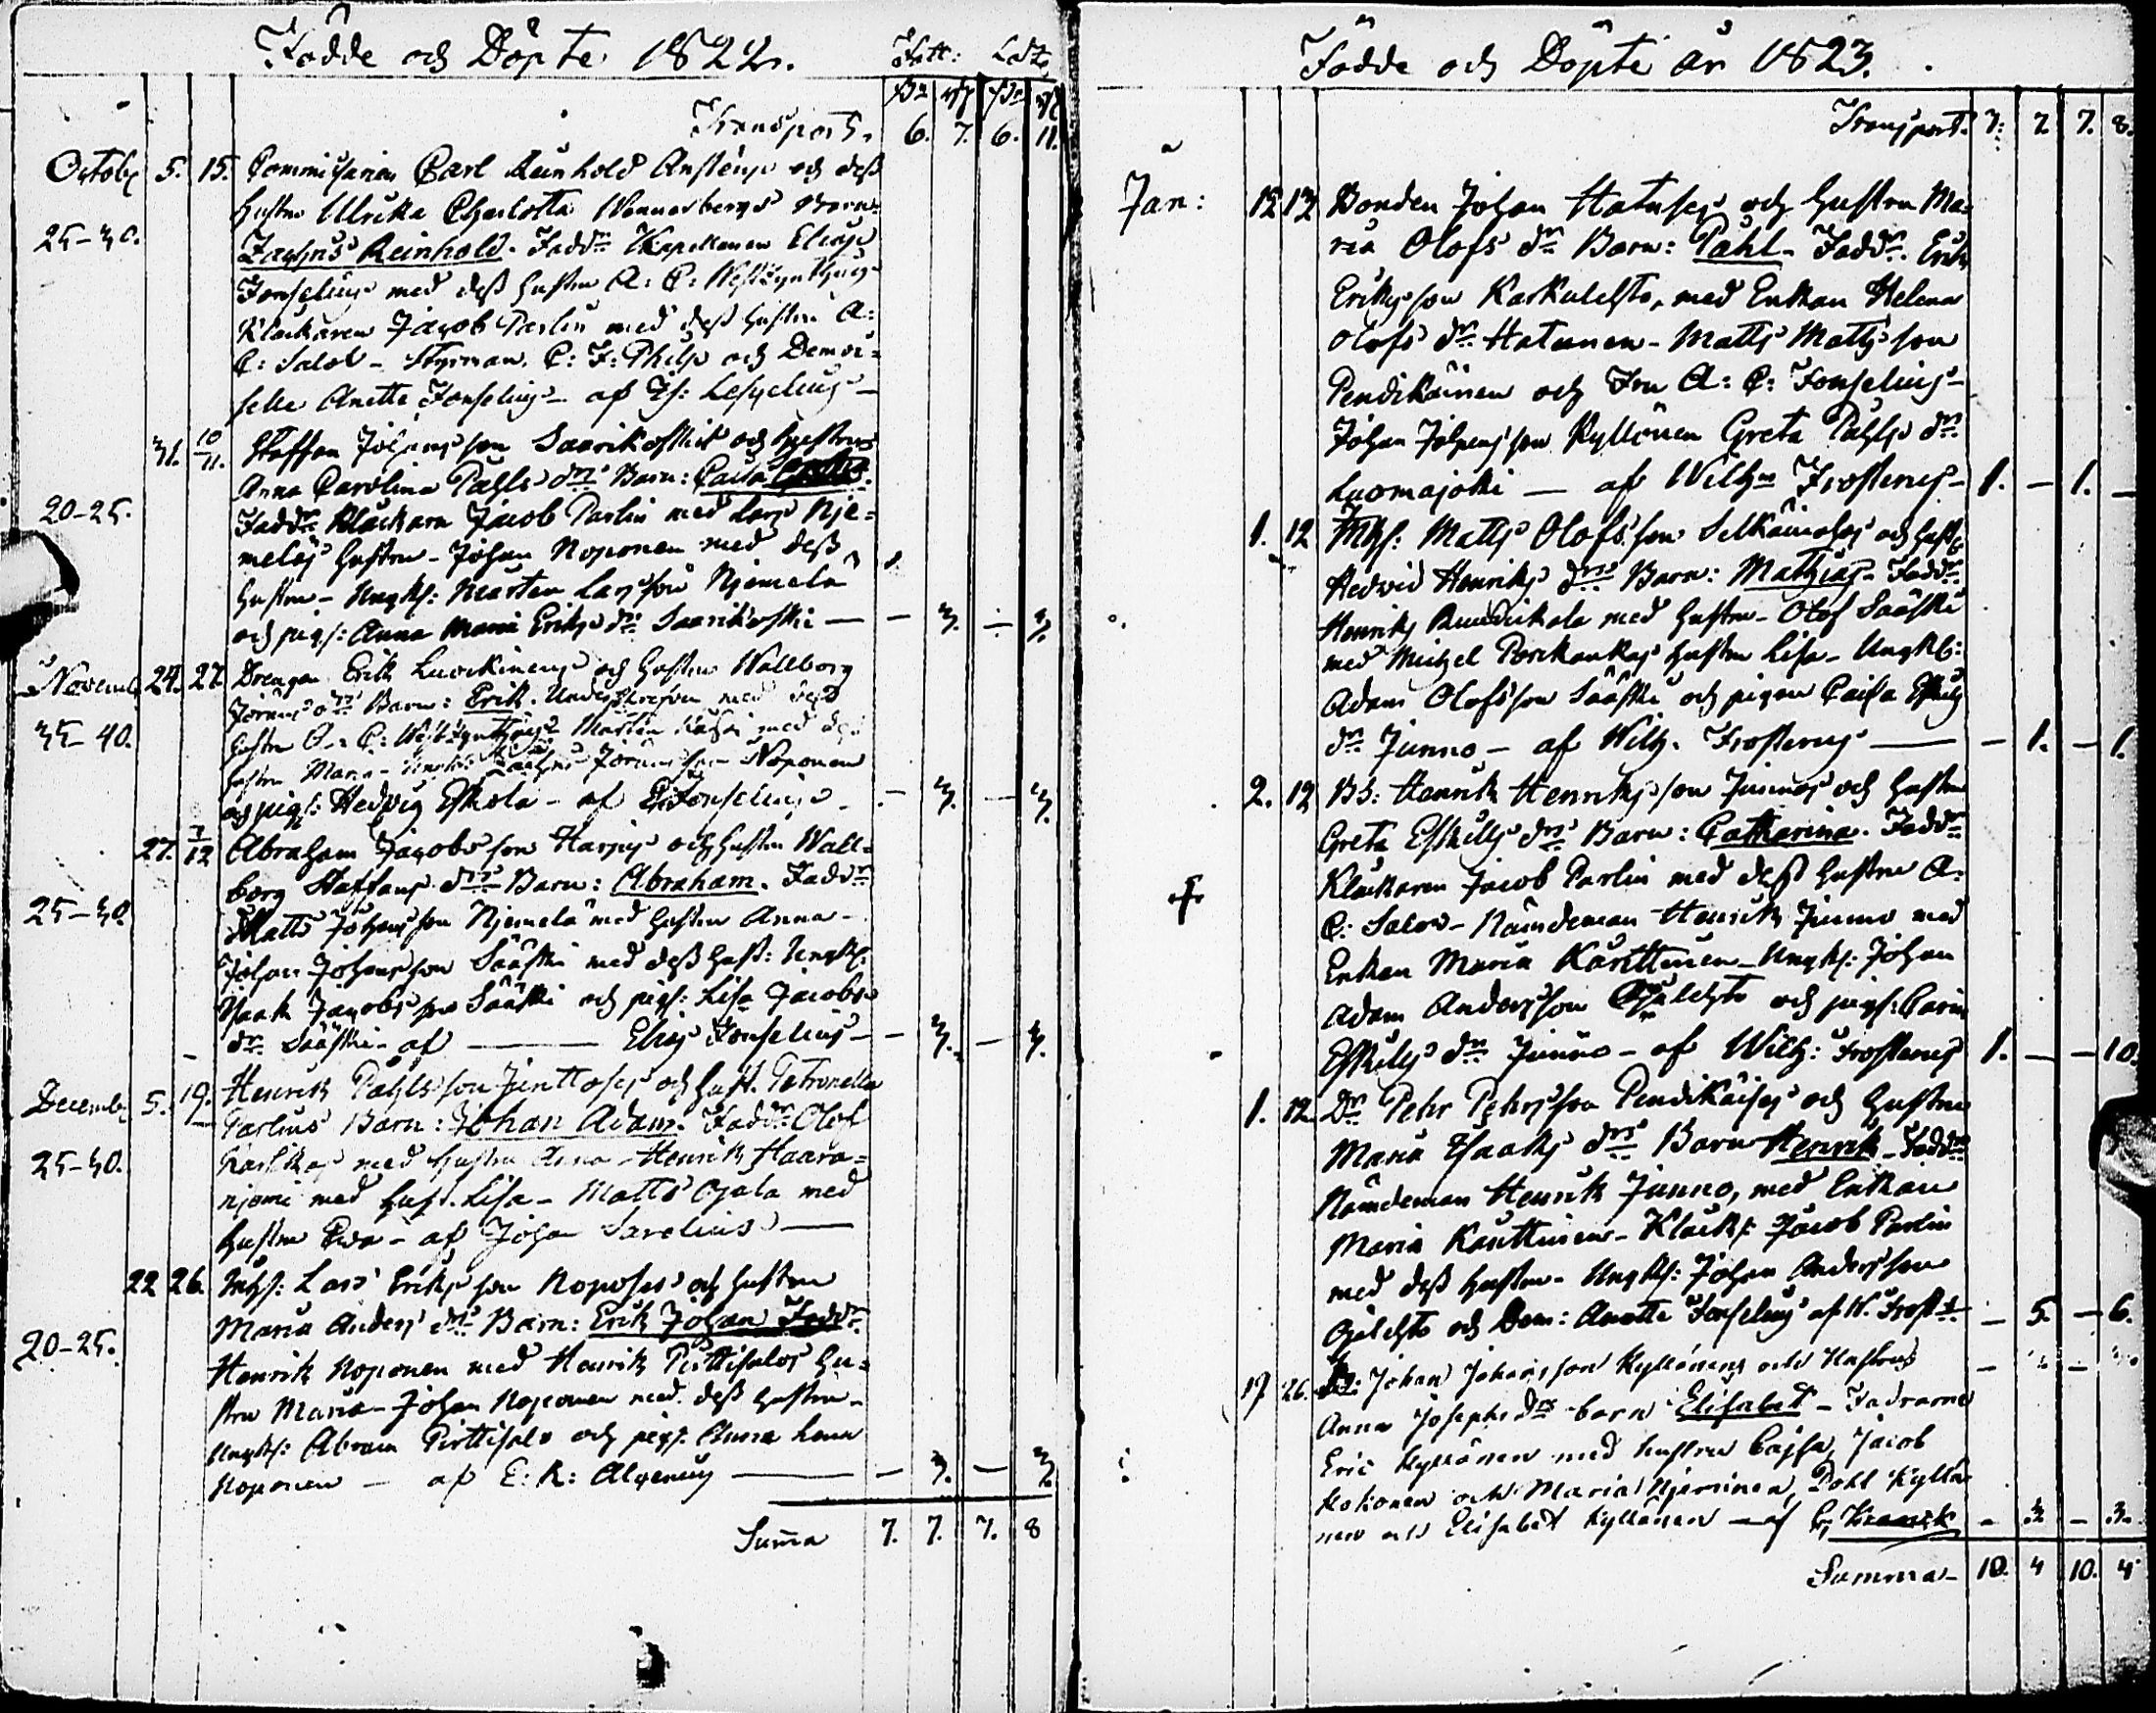 Födde och Döpte 1822.
Fatt: Ledt
Transport. 6. 7. 6. 11.
Octobr 5. 15. Commissarien Carl Reinhold och dess
25-30. hustru Ulrika Charlotta Wennerbergs Barn:
Zachris Reinhold. Faddr Kapellanen Elias
Fonselius med dess hustru A: C:
Klockaren Jacob Parlin med dess hustru A:
C: Salov - Styrman. C: F: Philp och Demoi=
selle Anette Fonselius - af
31. 10/11. Staffan Johansson Saarikoskis och hustrus
Anna Carolina Påhls drs Barn: Caisa
20-25. Faddr Klockarn Jacob Parlin med Lars Nje=
melas hustru - Johan Noponen med dess
hustru - Ungk: Mårten Larsson Njemelä
och pig: Anna Maria Eriks dr Saarikoski — - 3. - 3.
Novemb 24. 27. Drengen Erik Luukinens och hustru Wallborg
Jörans drs Barn: Erik. Underskrefven med dess
35-40. hustru A: C: Mårten med dess
hustru Maria - Zachris Jöransson Noponen
och pig: Hedvig Eskola - af E: Fonselius - 3. - 3.
27. 7/12 Abraham Jacobsson Harjus och hustru Wall=
borg Staffans drs Barn: Abraham. Faddr
25-30. Matts Johansson Njemelä med hustru Anna -
Johan Johansson Sääski med dess hust: Ungk:
Isaak Jacobsson Sääski och pig: Lisa Jacobs
dr Sääski - af — Elias Fonselius - 3. - 3.
Decemb 5. 19. Henrik Påhlsson Junttoses och hust. Petronella
Parlins Barn: Johan Adam. Faddr Olof
25-30. med hustru Anna - Henrik Haara=
njemi med hust. Lisa - Matts Ojala med
hustru Ewa - af Johan Sarelius —
22 26. Inh: Lars Eriksson Noposes och hustru
Maria Anders drs Barn: Erik Johan Faddr
20-25. Henrik Noponen med Henrik Pirttisalos hu=
stru Maria - Johan Noponen med dess hustru -
Ungk: Abram Pirttisalo och pig: Anna Lena
Noponen — af E: R: Algenius — - 3. - 3.
Summa 7. 7. 7. 8
Födde och Döpte år 1823.
Transport. 7: 7. 7. 8.
Jan: 12 13 Bonden Johan Hatuses och hustru Ma=
ria Olofs drs Barn: Påhl - Faddr. Erik
Eriksson Karkulehto, med Enkan Helena
Olofs dr Hatunen - Matts Mattsson
Pendikäinen och Fru A: C: Fonselius -
Johan Johansson Kyllönen Greta Påhls dr
Luomajoki — af Wilhm Frosterus - 1. - 1. -
1. 12 Inh: Matts Olofsson Selkämähs och hust
Hedvid Henriks drs Barn: Mathias - Faddr
Henrik med hustru - Olof Sääski
med Michel Porkankas hustru Lisa - Ungk:
Adam Olofsson Sääski och pigan Caisa Eskils
dr Junno - af Wilh. Frosterus — - 1. - 1.
2. 12 Bd: Henrik Henriksson Junnos och hustru
Greta Eskills drs Barn: Catharina. Faddr
Klockaren Jacob Parlin med dess hustru A:
C: Salov - Nämdeman Henrik Junno med
Enkan Maria Karttunen - Ungk: Johan
Adam Andersson Ojalehto och pig: Carin
Eskills dr Junno - af Wilh: Frosterus 1. - - 10.
1. 12 Dr Pehr Pehrsson Pendikäises och hustru
Maria Isaaks drs Barn Henrik - Faddr
Nämdeman Henrik Junno, med Enkan
Maria Karttunen - Klock: Jacob Parlin
med dess hustru - Ungk: Johan Andersson
Ojalehto och Dem: Anette Fonselius af W. Frost - 5. - 6.
19 26. Johan Johansson Kyllönens och Hustrus
Anna Josephs drs barn Elisabet - Fadrarne
Eric Kyllönen med hustru Cajsa, Jacob
Kokonen och Maria Njeminen, Pohl Kyllö
nen och Elisabet Kyllönen - af - 3. - 3.
Summa - 10. 4 10. 4